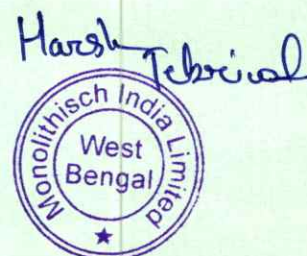 Harsh
Monolithisch India Limited
West
Bengal